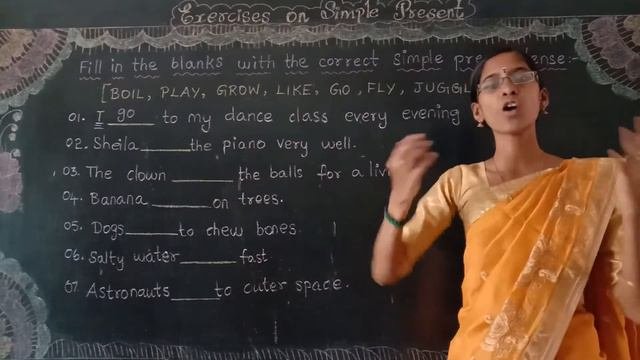 Exercises on Simple Present
Fill in the blanks with the correct simple pre ense:-
[BOIL, PLAY, GROW, LIKE, GO, FLY, JUGGL
01. I go to my dance class every evening
02. Sheila ______ the piano very well.
03. The clown ______ the balls for a liv
04. Banana ______ on trees.
05. Dogs ______ to chew bones
06. Salty water ______ fast
07. Astronauts ______ to outer space.